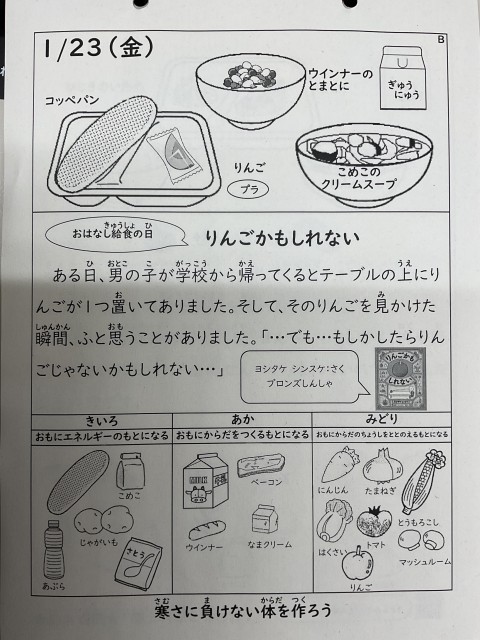 B
1/23(金)
ウインナーの
とまとに
ぎゅう
にゅう
コッペパン
りんご
プラ
こめこの
クリームスープ
おはなし給食の日
きゅうしょ ひ
りんごかもしれない
ある日、男の子が学校から帰ってくるとテーブルの上にり
ひ おとこ こ がっこう かえ うえ
んごが1つ置いてありました。そして、そのりんごを見かけた
お み
瞬間、ふと思うことがありました。「…でも…もしかしたらりん
しゅんかん おも
ごじゃないかもしれない…」
ヨシタケ シンスケ:さく
ブロンズしんしゃ
りんごかも
しれない
きいろ
あか
みどり
おもにエネルギーのもとになる
おもにからだをつくるもとになる
おもにからだのちょうしをととのえるもとになる
こめこ
じゃがいも
あぶら
さとう
MILK
ベーコン
ウインナー
なまクリーム
にんじん
たまねぎ
とうもろこし
はくさい
トマト
マッシュルーム
りんご
寒さに負けない体を作ろう
さむ ま からだ つく